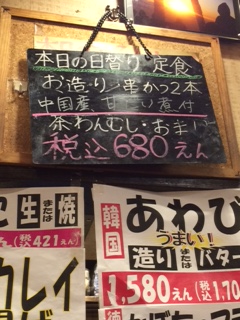 本日の日替り定食
お造り 串かつ2本
中国産 甘 い煮付
茶わんむし・お
税込680えん
生または焼
(税込421えん)
カレイ
韓国
あわび
うまい!
造りまたはバター
1,580えん (税込1,70